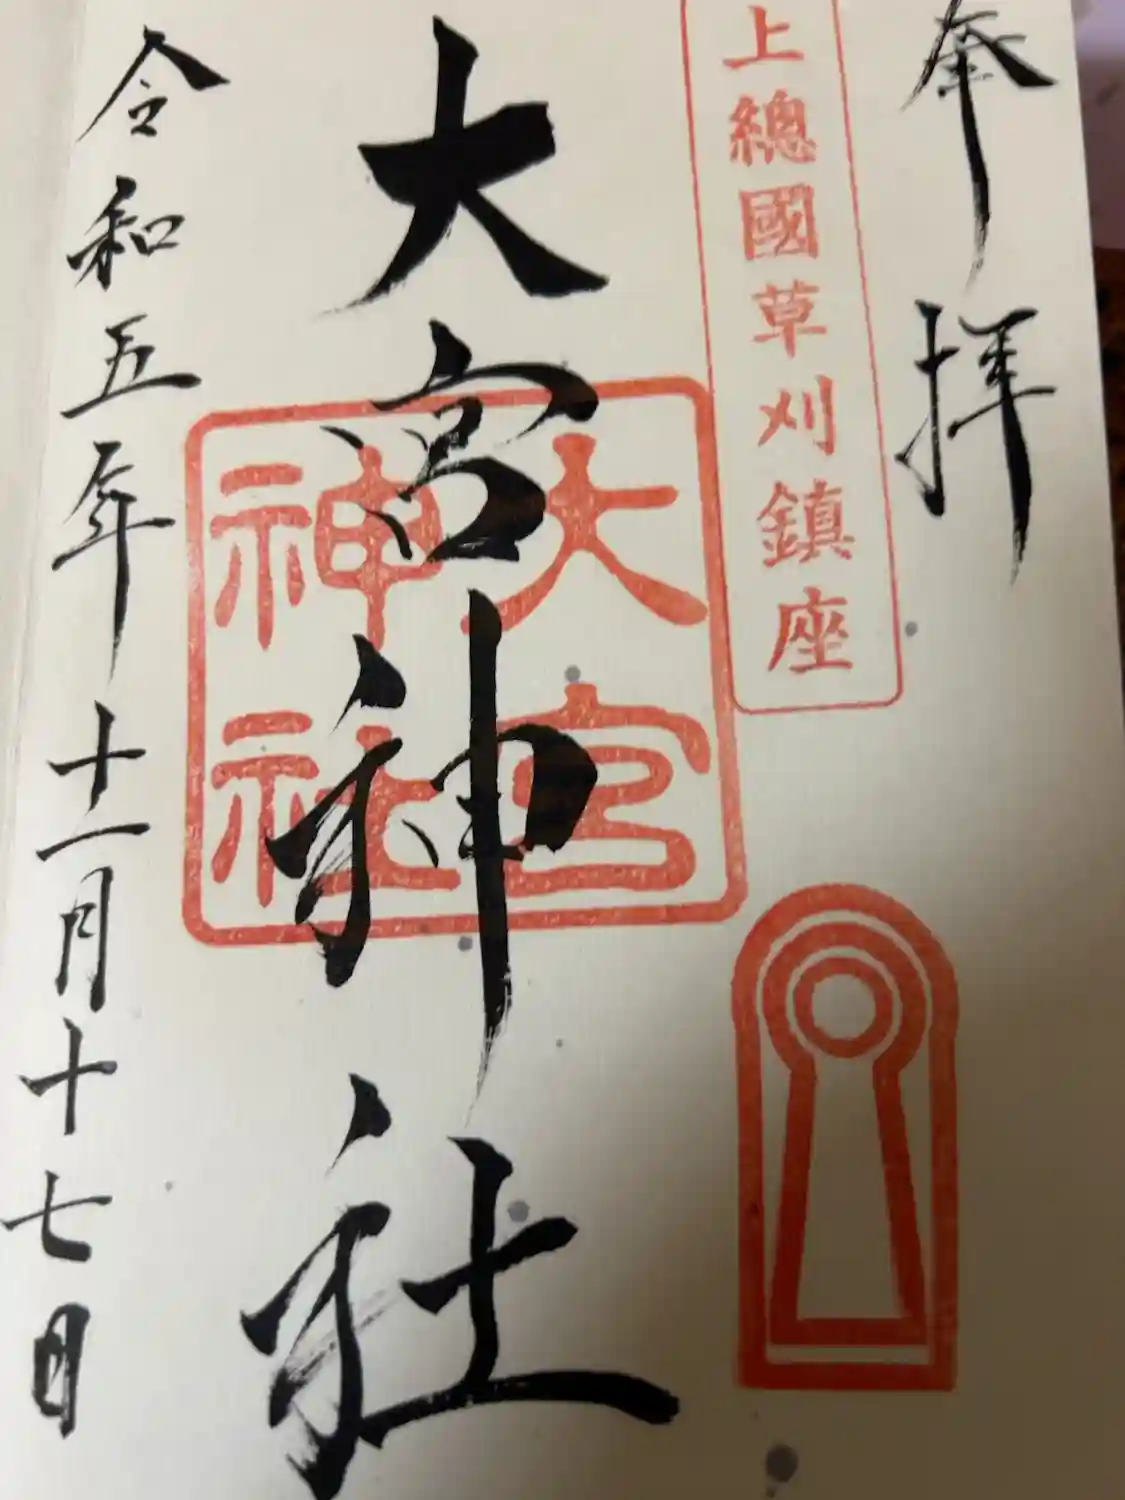 奉拝
上總國草刈鎮座
大宮神社
大宮
神社
令和五年十一月十七日